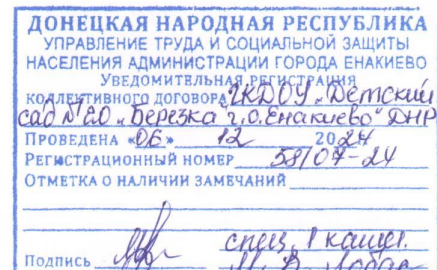 ДОНЕЦКАЯ НАРОДНАЯ РЕСПУБЛИКА
УПРАВЛЕНИЕ ТРУДА И СОЦИАЛЬНОЙ ЗАЩИТЫ
НАСЕЛЕНИЯ АДМИНИСТРАЦИИ ГОРОДА ЕНАКИЕВО
УВЕДОМИТЕЛЬНАЯ РЕГИСТРАЦИЯ
КОЛЛЕКТИВНОГО ДОГОВОРА ГКДОУ „Детский
сад №20 „Березка г.о. Енакиево" ДНР
ПРОВЕДЕНА «06» 12 2024
РЕГИСТРАЦИОННЫЙ НОМЕР 58/07-24
ОТМЕТКА О НАЛИЧИИ ЗАМЕЧАНИЙ
спец. I
ПОДПИСЬ